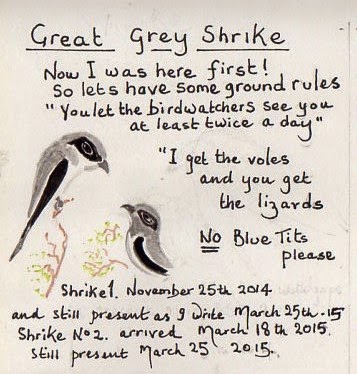 Great Grey Shrike
Now I was here first!
So lets have some ground rules
"You let the birdwatchers see you
at least twice a day"
"I get the voles
and you get
the lizards
No Blue Tits
please
Shrike 1. November 25th 2014
and still present as I write March 25th. 15
Shrike No 2. arrived March 18th 2015.
Still present March 25 2015.